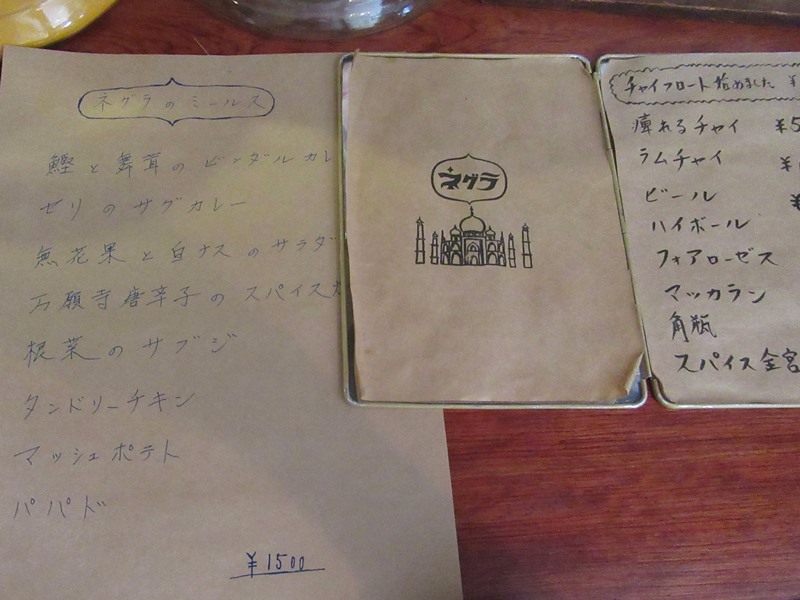 ネグラのミールス
鰹と舞茸のビンダルカレ
セリのサグカレー
無花果と白ナスのサラダ
万願寺唐辛子のスパイス
根菜のサブジ
タンドリーチキン
マッシュポテト
パパド
¥1500
ネグラ
チャイフロート始めました ¥
痺れるチャイ ¥5
ラムチャイ ¥
ビール ¥
ハイボール
フォアローゼス
マッカラン
角瓶
スパイス金宮